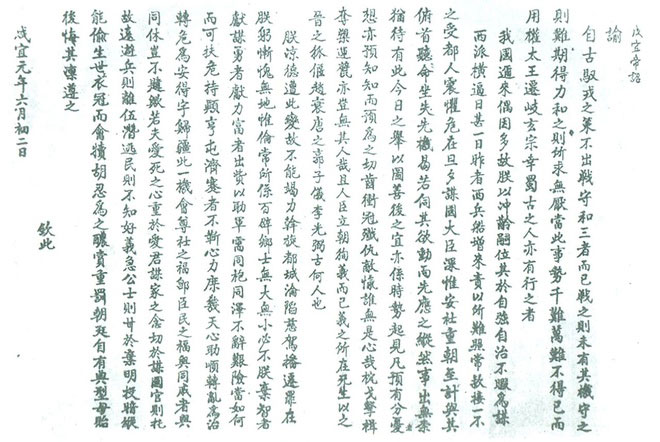 咸宜帝詔
諭
自古馭戎之策不出戰守和三者而已戰之則未有其機守之
則難期得力和之則所求無厭當此事勢千難萬難不得已而
用權太王遷岐玄宗幸蜀古之人亦有行之者
我國邇來偶因多故朕以冲齡嗣位其於自強自治不暇為謀
西派橫逼日甚一日昨者西兵船增來責以所難照常款接一不
之受都人震懼危在旦夕謀國大臣深惟安社重朝至計與其
俯首聽命坐失先機曷若伺其欲動而先應之縱然事出無柰
猶待有此今日之舉以圖善後之宜亦係時勢起見凡預有分憂者
想亦預知知而預為之切齒衝冠殲仇敵愾誰無是心哉枕戈擊楫
奪槊運甓亦豈無其人哉且人臣立朝狥義而已義之所在死生以之
晉之狐偃趙衰唐之郭子儀李光弼古何人也
朕凉德遭此變故不能竭力斡旋都城淪陷慈駕播遷罪在
朕躬慚愧無地惟倫常所係百辟卿士無大無小必不朕棄智者
獻謀勇者獻力富者出貲以助軍需同袍同澤不辭艱險當如何
而可扶危持顛亨屯濟蹇者不靳心力庶幾天心助順轉亂為治
轉危為安得宇歸疆此一機會尊社之福即臣民之福與同戚者與
同休豈不韙歟若夫愛死之心重於愛君謀家之念切於謀國官則托
故遠避兵則離伍潛逃民則不知好義急公士則甘於棄明投暗縱
能偷生世衣冠而禽犢胡忍為之醲賞重罰朝廷自有典型毋貽
後悔其凜遵之
欽此
咸宜元年六月初二日